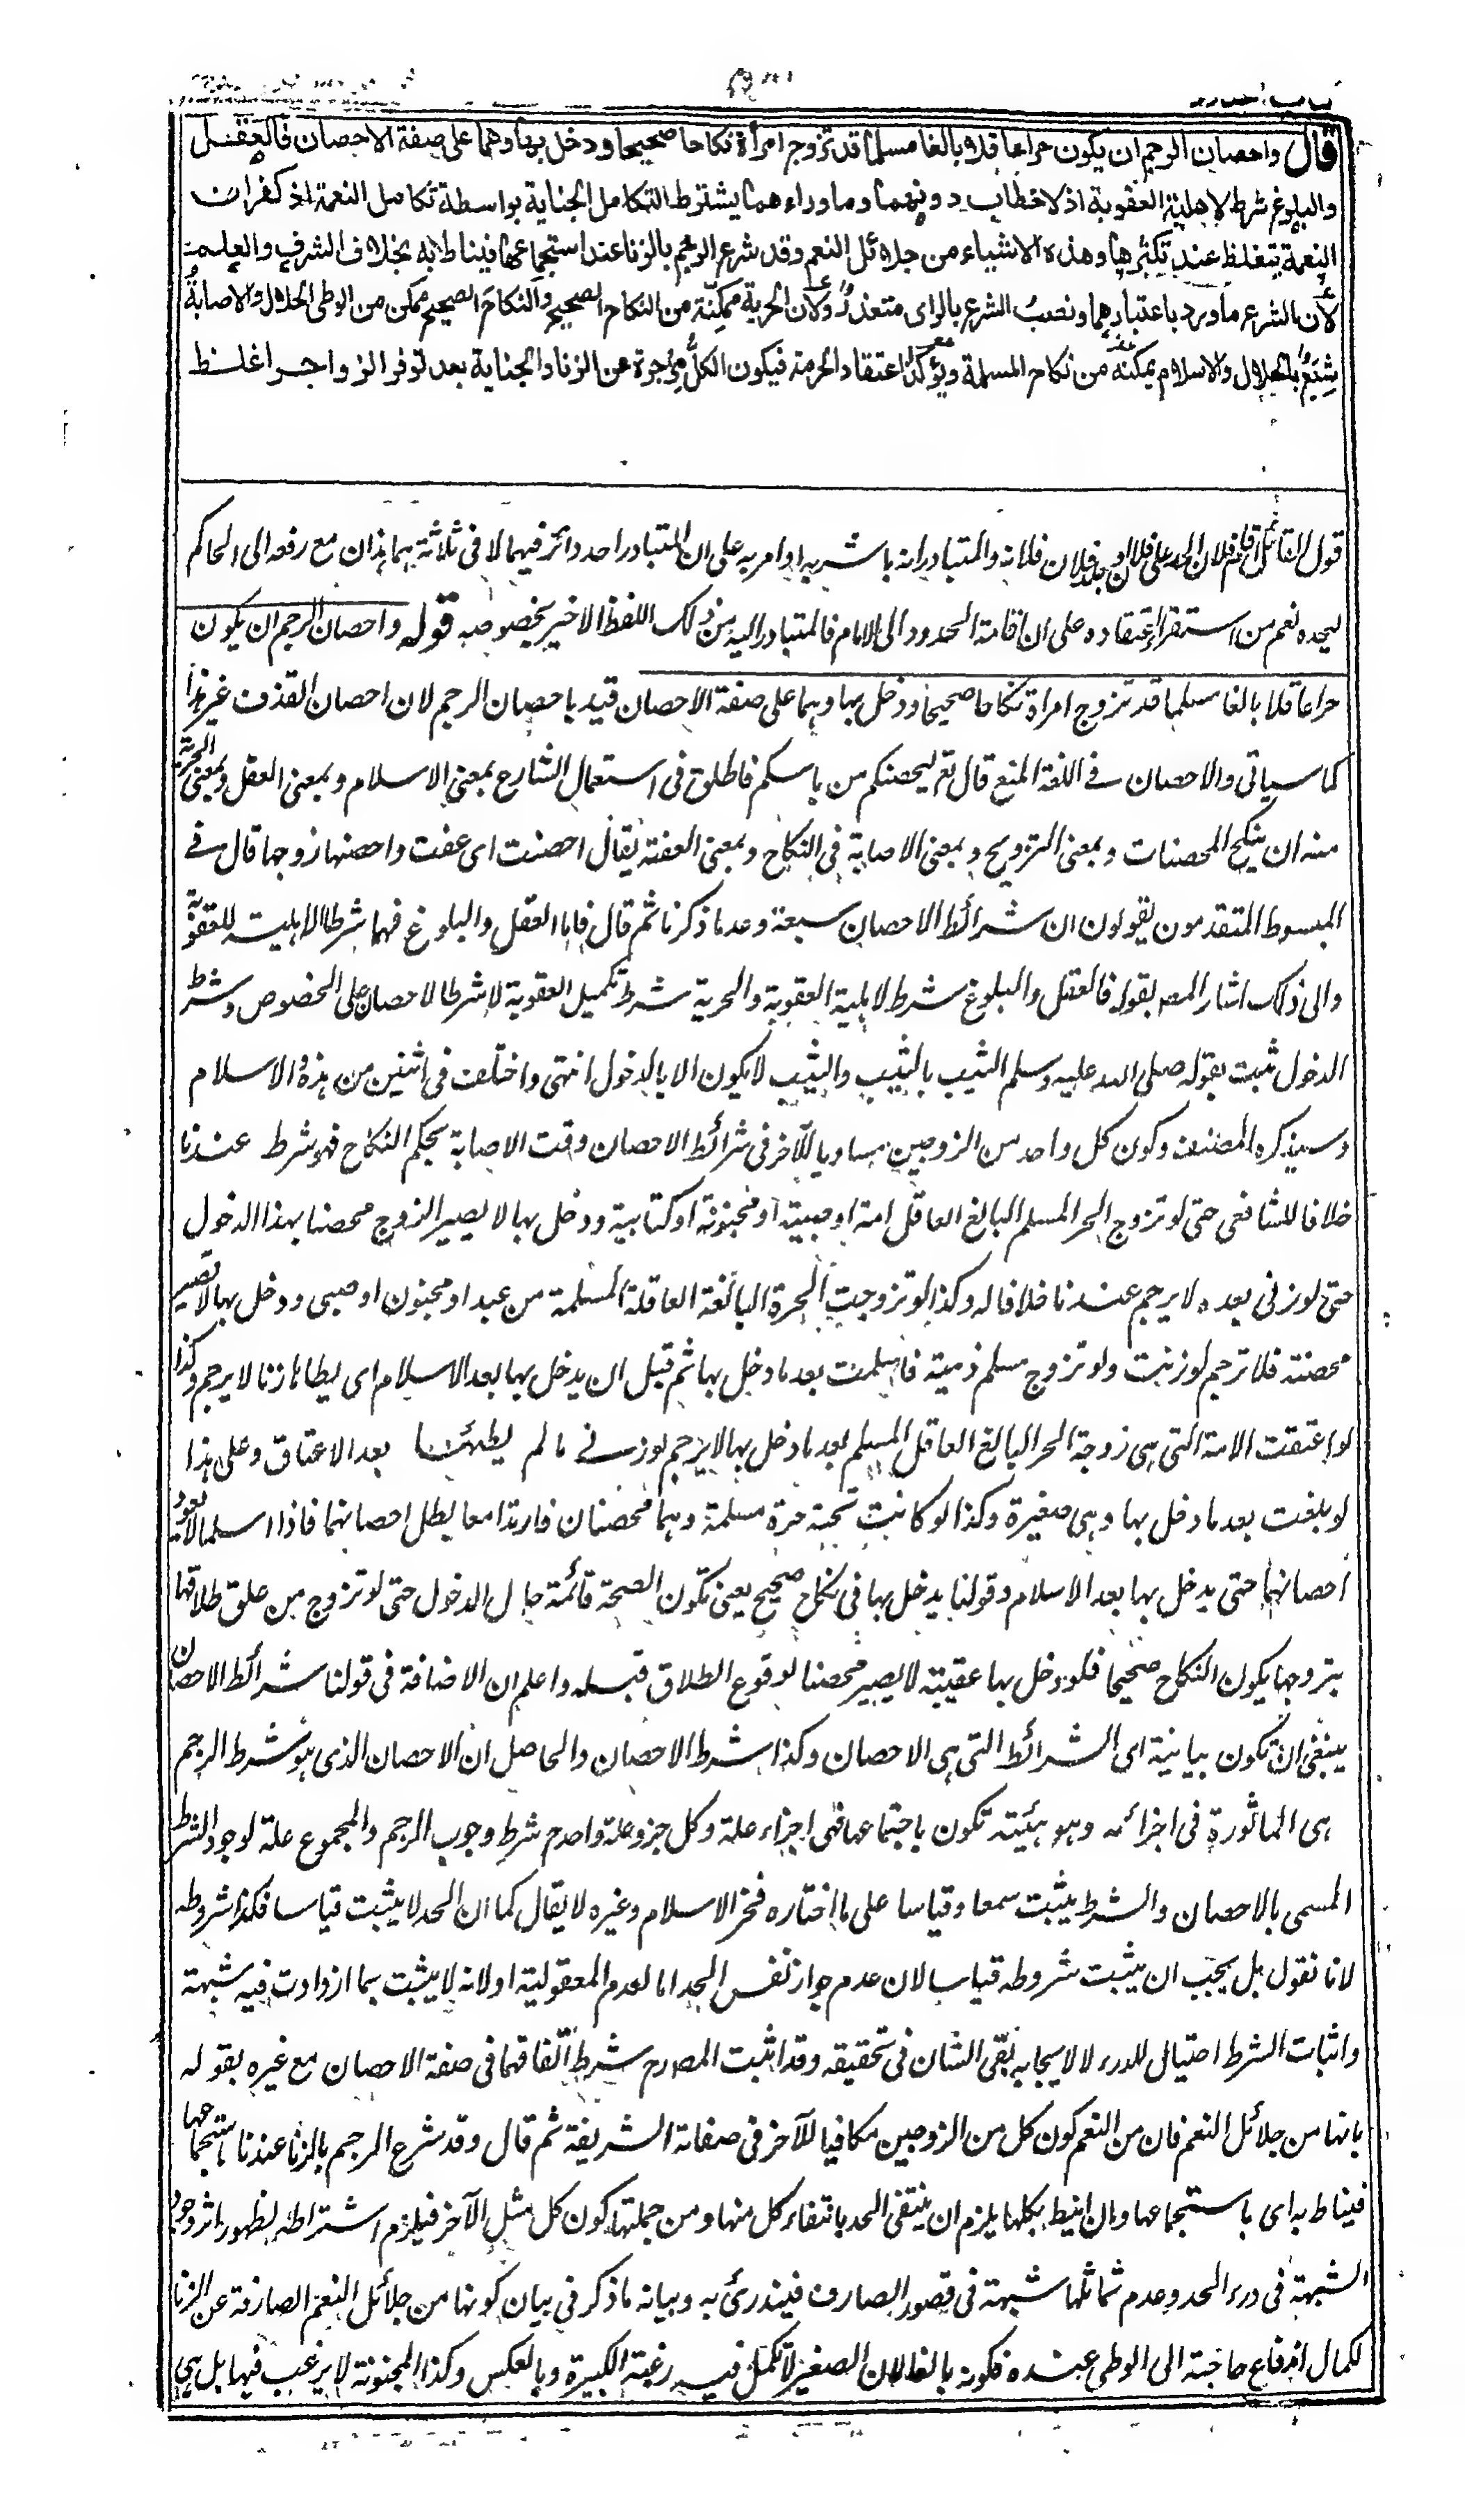 قال واحصان الرجم ان يكون حراعاقلا بالغا مسلما قد تزوج امرأة نكاحا صحيحا ودخل بها وهما على صفة الاحصان فالعقل
والبلوغ شرط لاهلية العقوبة اذ لا خطاب دونهما وما وراءهما يشترط لتكامل الجناية بواسطة تكامل النعمة اذ كفران
النعمة يتغلظ عند تكثرها وهذه الاشياء من جلائل النعم وقد شرع الرجم بالزنا عند استجماعها فيناط به بخلاف الشرف والعلم
لان الشرع ما ورد باعتبارهما ونصب الشرع بالراى متعذر ولان الحرية ممكنة من النكاح الصحيح والنكاح الصحيح ممكن من الوطى الحلال والاصابة
شبع بالحلال والاسلام يمكنه من نكاح المسلمة ويؤكد اعتقاد الحرمة فيكون الكل مزجرة عن الزنا والجناية بعد توفر الزواجر اغلظ
قول القائل اقام فلان الحد على فلان او جلد فلان فلانا والمتبادر انه باشره او امر به على ان المتبادر احد دائر فيهما لا فى ثلثة هما هذان مع رفعه الى الحاكم
ليحده نعم من استقراء اعتقاده على ان اقامة الحدود الى الامام فالمتبادر اليه من ذلك اللفظ الاخير بخصوصه قوله واحصان الرجم ان يكون
حرا عاقلا بالغا مسلما قد تزوج امراة نكاحا صحيحا ودخل بها وهما على صفة الاحصان قيد باحصان الرجم لان احصان القذف غير هذا
كما سياتى والاحصان فے اللغة المنع قال تع لتحصنكم من باسكم فاطلق فى استعمال الشارع بمعنى الاسلام وبمعنى العقل وبمعنى الحرية
منه ان ينكح المحصنات وبمعنى التزويج وبمعنى الاصابة فى النكاح وبمعنى العفة يقال احصنت اى عفت واحصنها زوجها قال فے
المبسوط المتقدمون يقولون ان شرائط الاحصان سبعة وعد ما ذكرنا ثم قال فاما العقل والبلوغ فهما شرطا الاهلية للعقوبة
والى ذلك اشار المصـ بقوله فالعقل والبلوغ شرط لاهلية العقوبة والحرية شرط تكميل العقوبة لا شرطا الاحصان على الخصوص وشرط
الدخول ثبت بقوله صلى الله عليه وسلم الثيب بالثيب والثيب لا يكون الا بالدخول انتهى واختلف فى اثنين من هذه الاسلام
وسيذكره المصنف وكون كل واحد من الزوجين مساويا للآخر فى شرائط الاحصان وقت الاصابة بحكم النكاح فهو شرط عندنا
خلافا للشافعى حتى لو تزوج الحر المسلم البالغ العاقل امة او صبية او مجنونة او كتابية ودخل بها لا يصير الزوج محصنا بهذا الدخول
حتى لو زنى بعده لا يرجم عندنا خلافا له وكذا لو تزوجت الحرة البالغة العاقلة المسلمة من عبد او مجنون او صبى ودخل بها لا تصير
محصنة فلا ترجم لو زنت ولو تزوج مسلم ذمية فاسلمت بعد ما دخل بها ثم قبل ان يدخل بها بعد الاسلام اى يطاها زنا لا يرجم وكذا
لو اعتقت الامة التى هى زوجة الحر البالغ العاقل المسلم بعد ما دخل بها لا يرجم لو زنے ما لم يطأها بعد الاعتاق وعلى هذا
لو بلغت بعد ما دخل بها وهى صغيرة وكذا لو كانت تحته حرة مسلمة وهما محصنان فارتدا معا بطل احصانهما فاذا اسلما لا يعود
احصانهما حتى يدخل بها بعد الاسلام وقولنا يدخل بها فى نكاح صحيح يعنى تكون الصحة قائمة حال الدخول حتى لو تزوج من علق طلاقها
بتزوجها يكون النكاح صحيحا فلو دخل بها عقيبه لا يصير محصنا لوقوع الطلاق قبله واعلم ان الاضافة فى قولنا شرائط الاحصان
ينبغى ان تكون بيانية اى الشرائط التى هى الاحصان وكذا شرط الاحصان والحاصل ان الاحصان الذى هو شرط الرجم
هى الماثورة فى اجزائه وهو هيئة تكون باجتماعها فهى اجزاء علة وكل جزو علة واحدم شرط وجوب الرجم والمجموع علة لوجود الشرط
المسمى بالاحصان والشرط يثبت سمعا وقياسا على ما اختاره فخر الاسلام وغيره لا يقال كما ان الحد لا يثبت قياسا فكذا شروطه
لانا نقول بل يجب ان يثبت شروطه قياسا لان عدم جواز نفس الحد اما لعدم المعقولية او لانه لا يثبت بما ازدادت فيه شبهة
واثبات الشرط احتيال للدرء لا لايجابه بقى الشان فى تحقيقه وقد اثبت المصـ رح شرط اتفاقهما فى صفة الاحصان مع غيره بقوله
بانها من جلائل النعم فان من النعم كون كل من الزوجين مكافيا للآخر فى صفاته الشريفة ثم قال وقد شرع الرجم بالزنا عندنا باستجماعها
فيناط به اى باستجماعها وان انيط بكلها يلزم ان ينتفى الحد بانتفاء كل منها ومن جملتها كون كل مثل الآخر فيلزم اشتراطه لظهور اثر وجود
الشبهة فى درء الحد وعدم تماثلها شبهة فى قصور الصارف فيندرئ به وبيانه ما ذكر فى بيان كونها من جلائل النعم الصارفة عن الزنا
لكمال اندفاع حاجته الى الوطى عنده فكونه بالغا لان الصغير لا تكمل فيه رغبة الكبيرة وبالعكس وكذا المجنونة لا يرغب فيها بل هى